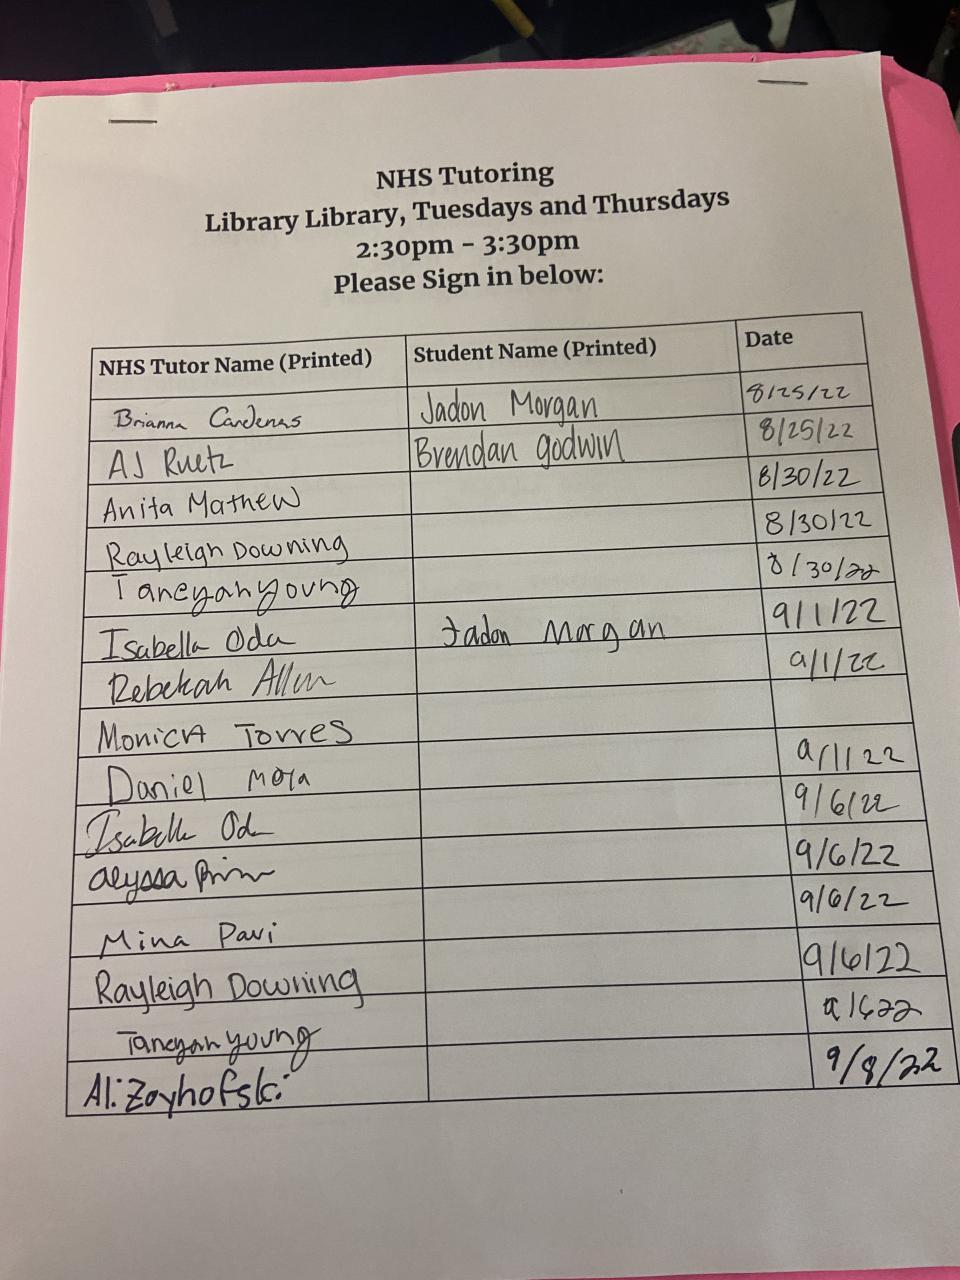 NHS Tutoring
Library Library, Tuesdays and Thursdays
2:30pm - 3:30pm
Please Sign in below:
NHS Tutor Name (Printed) Student Name (Printed) Date
Brianna Cardenas Jadon Morgan 8/25/22
AJ Ruetz Brendan godwin 8/25/22
Anita Mathew 8/30/22
Rayleigh Downing 8/30/22
Taneyah young 8/30/22
Isabella Oda Jadon Morgan 9/1/22
Rebekah Allen 9/1/22
Monica Torres
Daniel Mora 9/1/22
Isabella Oda 9/6/22
alyssa 9/6/22
Mina Pavi 9/6/22
Rayleigh Downing 9/6/22
Taneyah young 9/622
Ali Zoyhofski 9/8/22